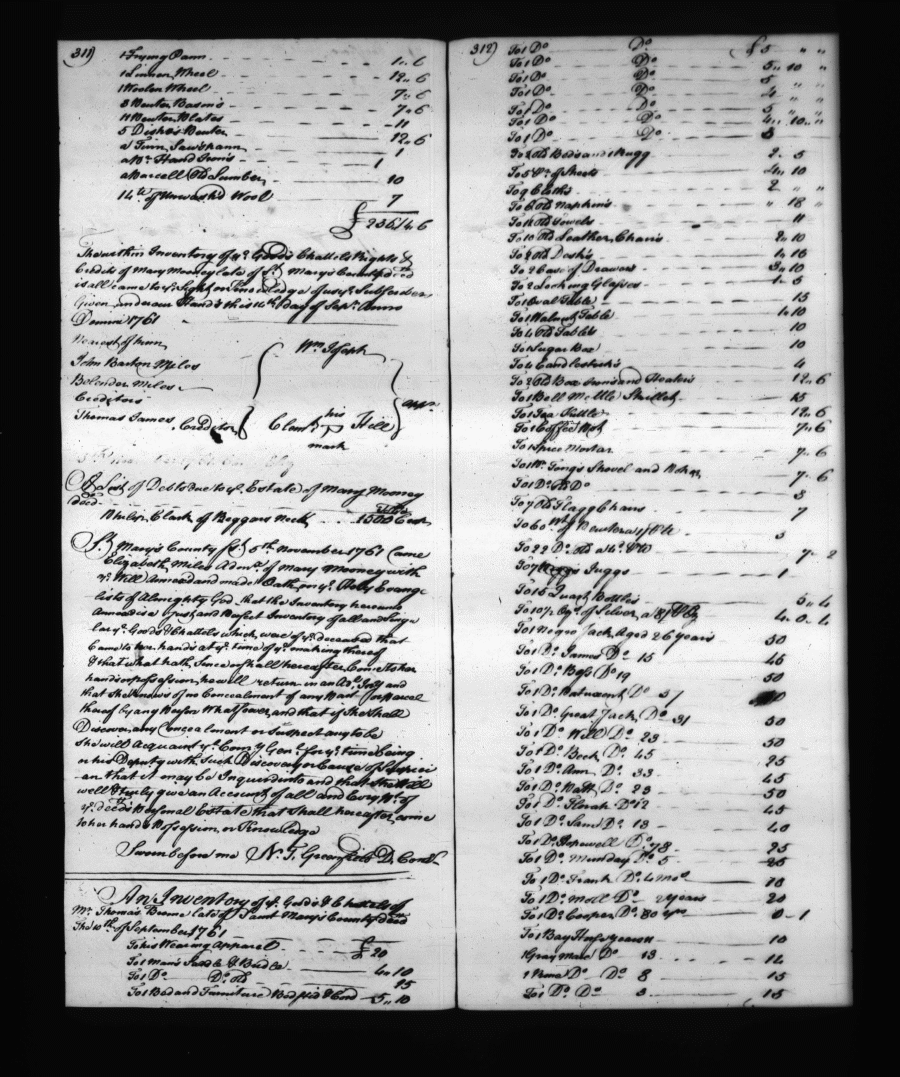 311)
1 Frying Pann - - - 1.. 6
1 Linnen Wheel - - - 12.. 6
1 Woolen Wheel - - - 7.. 6
3 Pewter Basons - - - 7.. 6
11 Pewter Plates - - - 11
5 Dishes Pewter - - - 12.. 6
a Tinn - - - 1
a Pr. Hand Irons - - - 1
a Parcell Old Lumber - - - 10
14 lb of Unwash'd Wool - - - 7
£ 236.14.6
The within Inventory of ye. Goods Chattels Rights &
Credits of Mary Mooney late of St. Mary's County decd
is all came to ye. Sight or Knowledge of us ye. Subscribers
Given under our Hands this 14th Day of Sepr. Anno
Domini 1761
Nearest of kinn
John Barton Miles
Belender Miles
Creditors
Thomas James, Creditor
Wm. Joseph
his
Clemt. Hill
mark
appr.
A List of Debts due to ye. Estate of Mary Mooney
decd.
Philip Clark of Beggars Neck - - 1500
St. Mary's County Sct. 5th November 1761 Came
Elizabeth Miles Admx. of Mary Mooney with
ye. Will Annexed and made Oath on ye. Holy Evange
lists of Almighty God that the Inventory hereunto
Annexed is a just and Perfect Inventory of all and Singu
lar ye. Goods & Chattels which were of ye. deceased that
Came to her hands at ye. time of ye. making thereof
& that what hath Since or shall hereafter Come to her
hands or possession, he will return in an Addl. Invy and
that She knows of no Concealment of any Part or Parcel
thereof by any Person Whatsoever, and that if She Shall
Discover any Concealment or Suspect any to be
She will Acquaint ye. Comry Genl. for ye. time being
or his Deputy with Such Discovery or Cause of Suspici
on that it may be Inquired into and that She Will
well & truly give an Account of all and Every Pt. of
ye. decds Personal Estate that Shall hereafter come
to her hands Possession or Knowledge
Sworn before me N. T. Greenfield D. Comy
An Inventory of ye. Goods & Chattels of
Mr. Thomas Broome late of Saint Mary's County decd
The 10th of September 1761
To his Wearing Apparel - - - £ 20
To 1 Man's Saddle & Bridle - - - 4.. 10
To 1 Do. Do. Old - - - 15
To 1 Bed and Furniture Bedsted & Cord - 5.. 10
312)
To 1 Do. Do. £ 5 " "
To 1 Do Do. 5.. 10 "
To 1 Do Do. 5 " "
To 1 Do Do. 4 " "
To 1 Do Do. 5 " "
To 1 Do Do. 4.. 10.. "
To 1 Do. Do. 3
To 2 Old Beds and 1 Rugg 2.. 5
To 5 Pr. of Sheets 4.. 10
To 9 Cloths 2 " "
To 6 Old Napkins " 18 "
To 12 Old Towels 11
To 10 Old Leather Chairs 2.. 10
To 2 Old Desks 1.. 16
To 2 Case of Drawers 3.. 10
To 2 Looking Glasses 1.. 5
To 1 Oval Table 15
To 1 Walnut Table 1. 10
To 4 Old Tables 10
To 1 Sugar Box 10
To 4 Candlesticks 4
To 2 Old Box Irons and Heaters 12.. 6
To 1 Bell Mettle Skillet 15
To 1 Tea Kittle 12.. 6
To 1 Coffee Pot 7.. 6
To 1 Spice Mortar 7.. 6
To 1 Pr. Tongs Shovel and Poker 7.. 6
To 1 Do. Old Do 3
To 7 Old Flagg Chairs 7
To 60 Wt. of Pewter a 1/ 3
To 22 Do. Old a 4d. 7.. 2
To 7 Juggs 1
To 15 Quart Bottles 5.. 4
To 10 1/2 Oz. of Silver a 4. 0. 4
To 1 Negro Jack Aged 26 years 50
To 1 Do. James Do 15 45
To 1 Do. Bess Do 19 50
To 1 Do. Do 31
To 1 Do. Great Jack Do. 31 50
To 1 Do. Will Do. 23 50
To 1 Do. Beck Do. 45 25
To 1 Do. Ann Do. 33 45
To 1 Do. Watt Do. 23 50
To 1 Do. Florah Do. 12 45
To 1 Do. Sam Do. 13 40
To 1 Do. Hopewell Do. 78 25
To 1 Do. Munday Do. 5 25
To 1 Do. Frank Do. 4 Mos 10
To 1 Do. Moll Do 2 years 20
To 1 Do. Cooper Do. 80 yrs 0-1
To 1 Bay Horse years 11 10
1 Gray Mare Do 13 12
1 Do Do 8 15
To 1 Do. Do 3 15